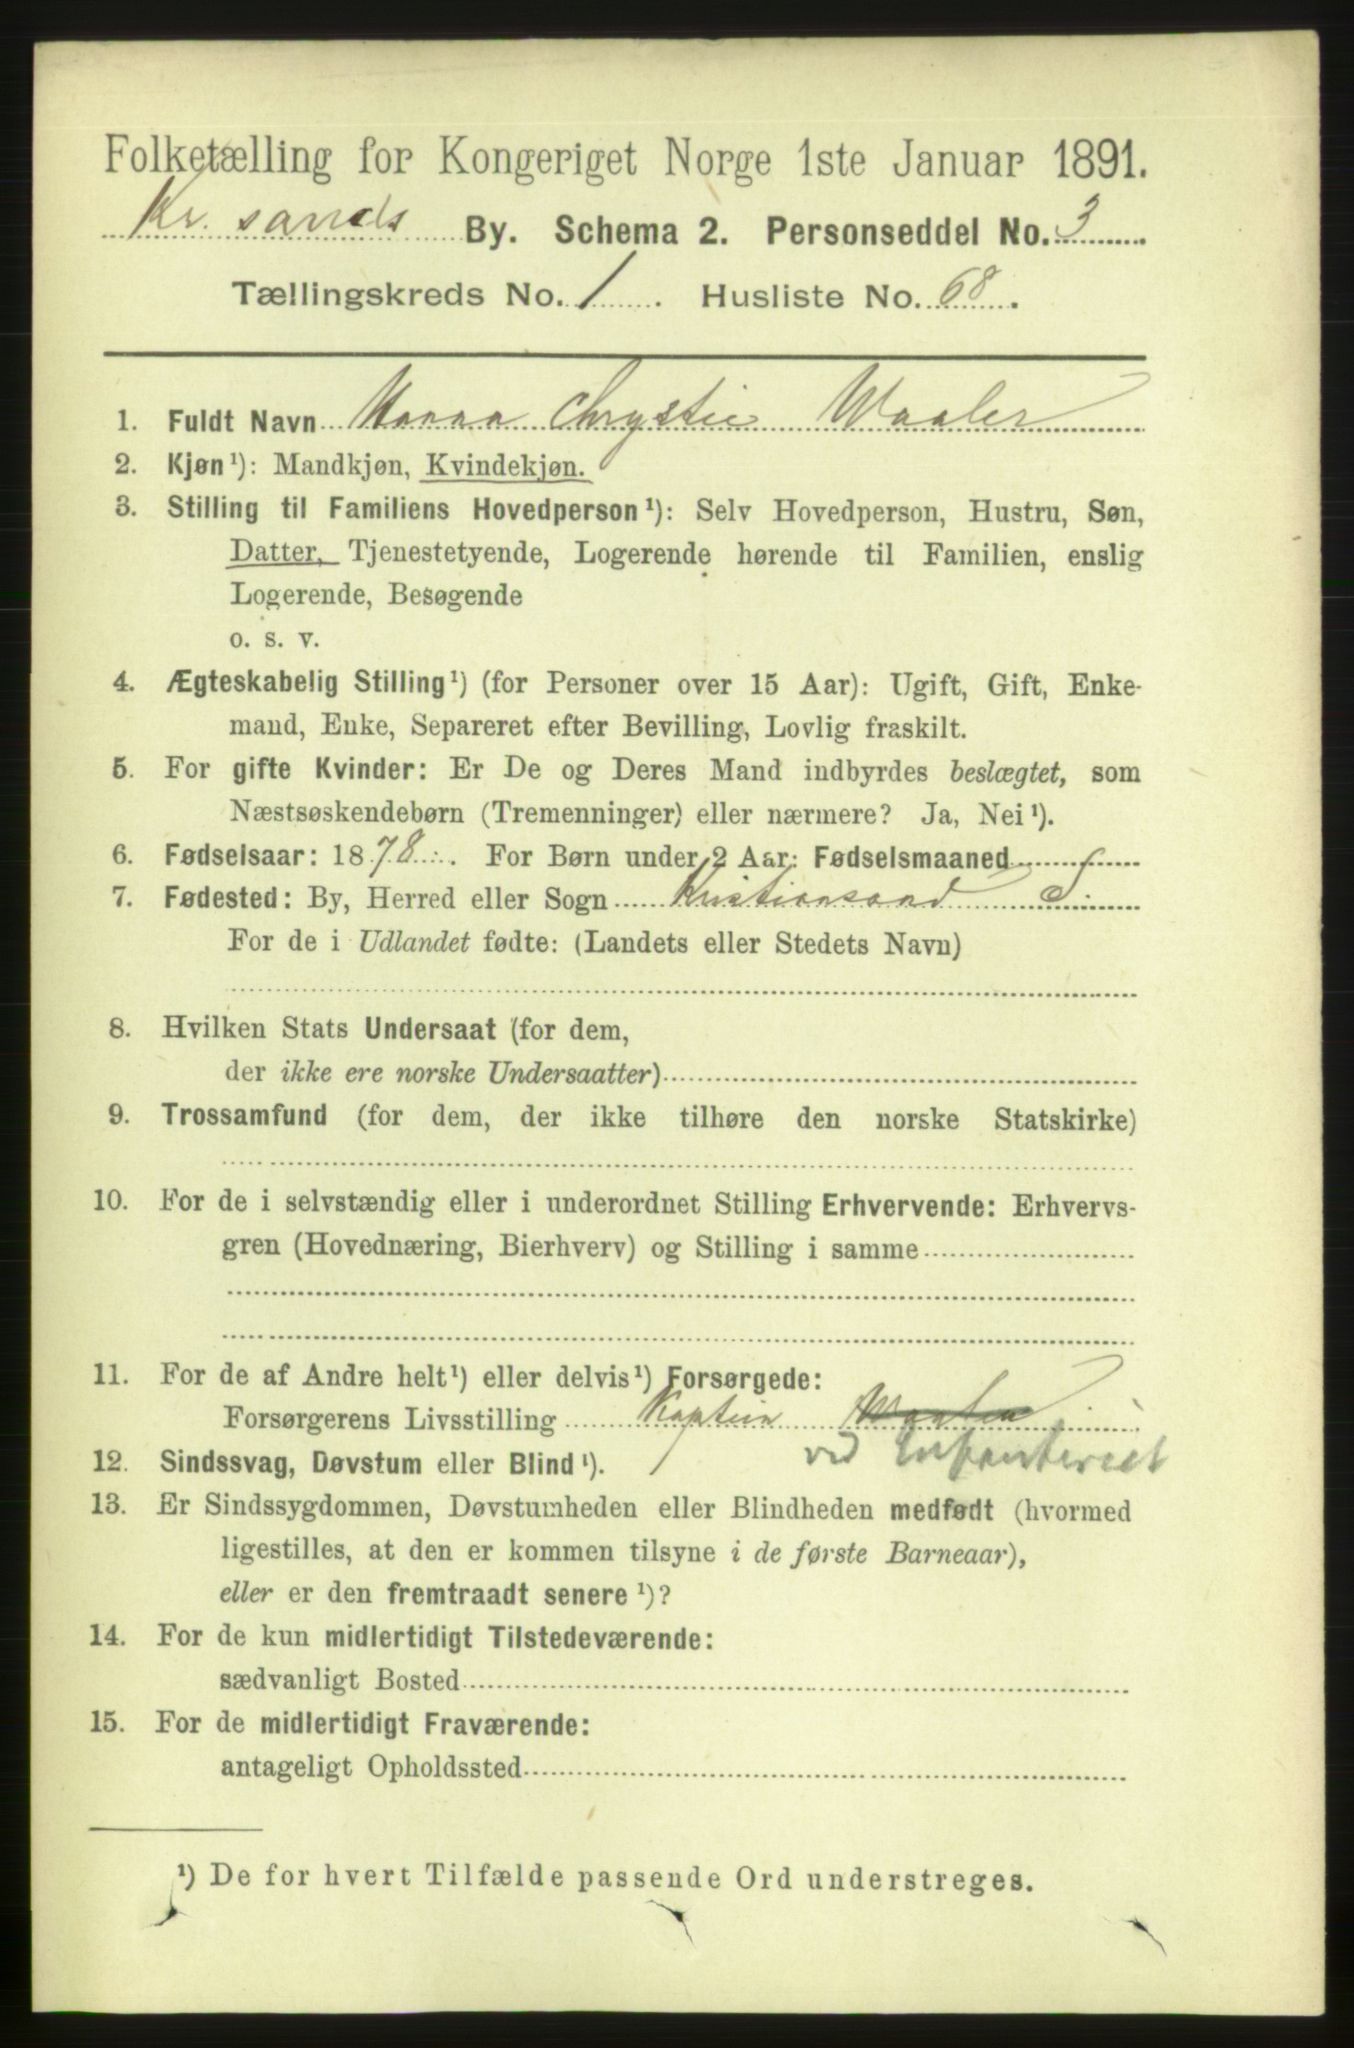 Folketælling for Kongeriget Norge 1ste Januar 1891.
Kr. sands By. Schema 2. Personseddel No. 3.
Tællingskreds No. 1. Husliste No. 68.
1. Fuldt Navn Hanna Chrystie Waaler
2. Kjøn¹): Mandkjøn, Kvindekjøn.
3. Stilling til Familiens Hovedperson¹): Selv Hovedperson, Hustru, Søn,
Datter, Tjenestetyende, Logerende hørende til Familien, enslig
Logerende, Besøgende
o. s. v.
4. Ægteskabelig Stilling¹) (for Personer over 15 Aar): Ugift, Gift, Enke-
mand, Enke, Separeret efter Bevilling, Lovlig fraskilt.
5. For gifte Kvinder: Er De og Deres Mand indbyrdes beslægtet, som
Næstsøskendebørn (Tremenninger) eller nærmere? Ja, Nei¹).
6. Fødselsaar: 1878. For Børn under 2 Aar: Fødselsmaaned
7. Fødested: By, Herred eller Sogn Kristiansand S.
For de i Udlandet fødte: (Landets eller Stedets Navn)
8. Hvilken Stats Undersaat (for dem,
der ikke ere norske Undersaatter)
9. Trossamfund (for dem, der ikke tilhøre den norske Statskirke)
10. For de i selvstændig eller i underordnet Stilling Erhvervende: Erhvervs-
gren (Hovednæring, Bierhverv) og Stilling i samme
11. For de af Andre helt¹) eller delvis¹) Forsørgede:
Forsørgerens Livsstilling Kaptein
ved Infanteriet
12. Sindssvag, Døvstum eller Blind¹).
13. Er Sindssygdommen, Døvstumheden eller Blindheden medfødt (hvormed
ligestilles, at den er kommen tilsyne i de første Barneaar),
eller er den fremtraadt senere¹)?
14. For de kun midlertidigt Tilstedeværende:
sædvanligt Bosted
15. For de midlertidigt Fraværende:
antageligt Opholdssted
¹) De for hvert Tilfælde passende Ord understreges.